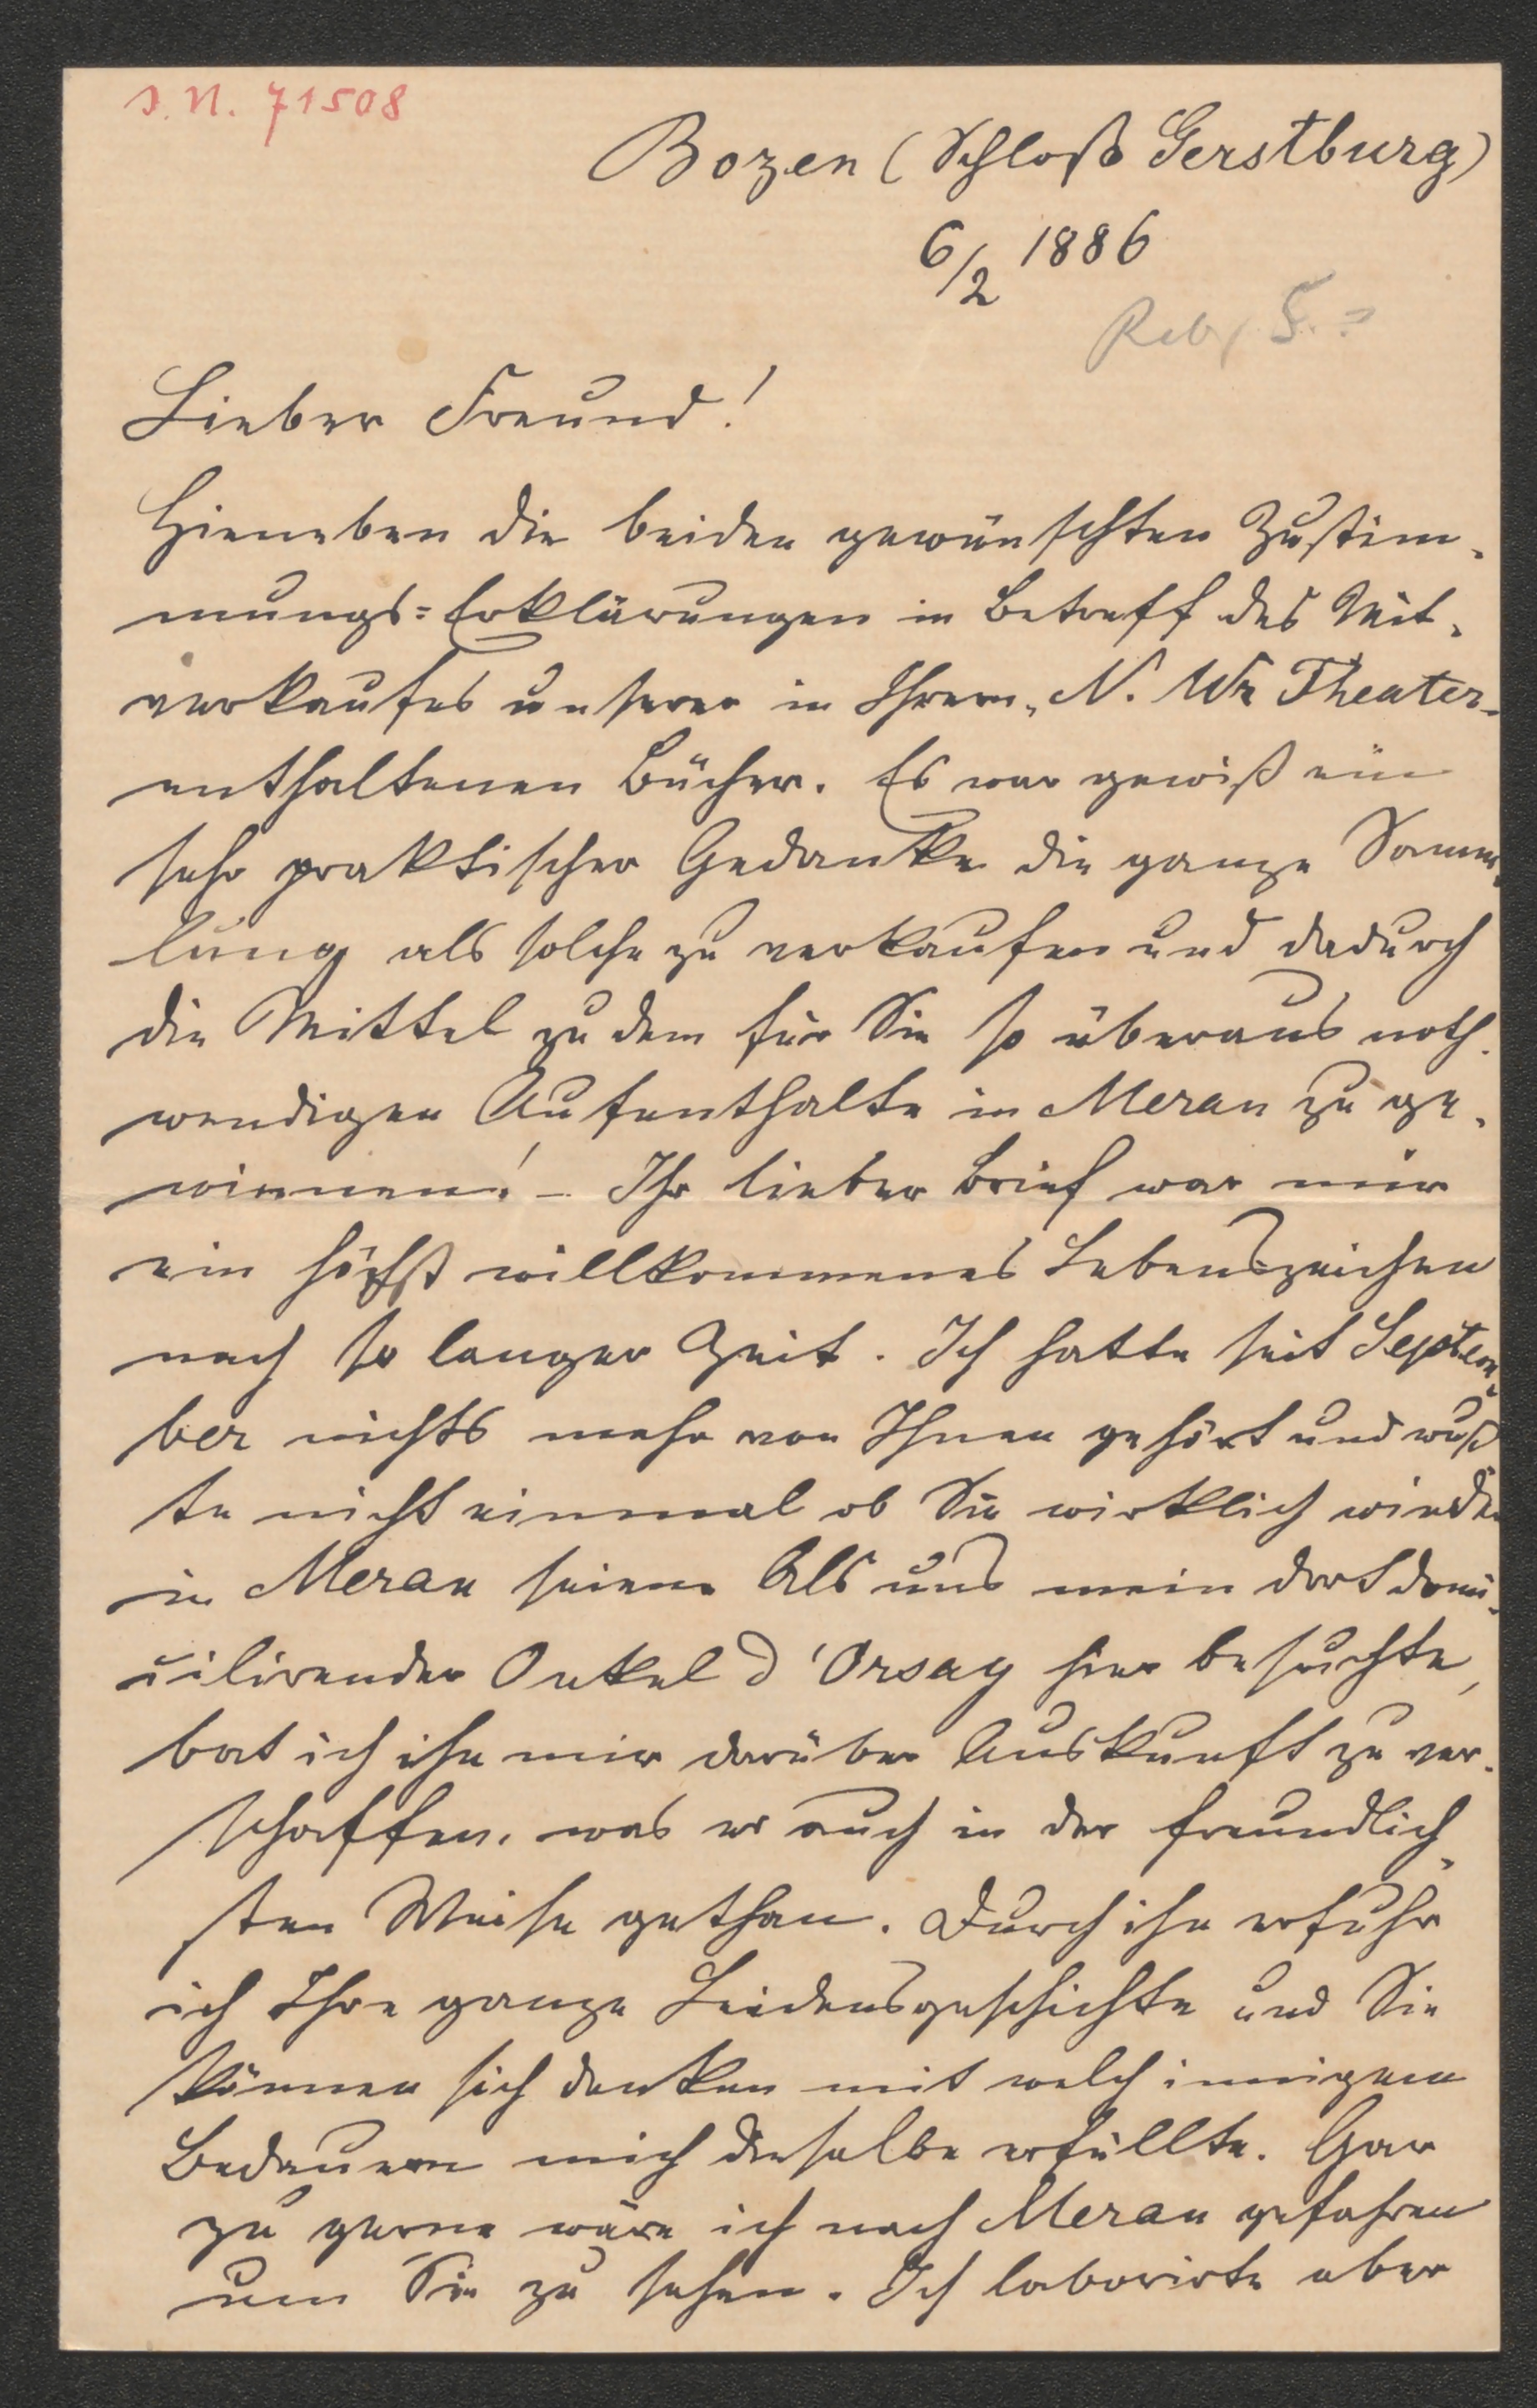 J. N. 71508
Bozen (Schloß Gerstburg)
6/2 1886
Lieber Freund!
Hieneben die beiden gewünschten Zustim-
mungs=Erklärungen in Betreff des Mit-
verkaufes unserer in Ihrem „N. Wr Theater"
enthaltenen Bücher. Es war gewiß ein
sehr praktischer Gedanke die ganze Samm-
lung als solche zu verkaufen und dadurch
die Mittel zu dem für Sie so überaus noth-
wendigen Aufenthalte in Meran zu ge-
winnen! – Ihr lieber Brief war mir
ein höchst willkommenes Lebenszeichen
nach so langer Zeit. Ich hatte seit Septem-
ber nichts mehr von Ihnen gehört und wuß
te nicht einmal ob Sie wirklich wieder
in Meran seien. Als uns mein dort domi-
cilirender Onkel d'Orsay hier besuchte,
bat ich ihn mir darüber Auskunft zu ver-
schaffen, was er auch in der freundlich-
sten Weise gethan. Durch ihn erfuhr
ich Ihre ganze Leidensgeschichte und Sie
können sich denken mit welch innigem
Bedauern mich dieselbe erfüllte. Gar
zu gerne wäre ich nach Meran gefahren
um Sie zu sehen. Ich laborirte aber